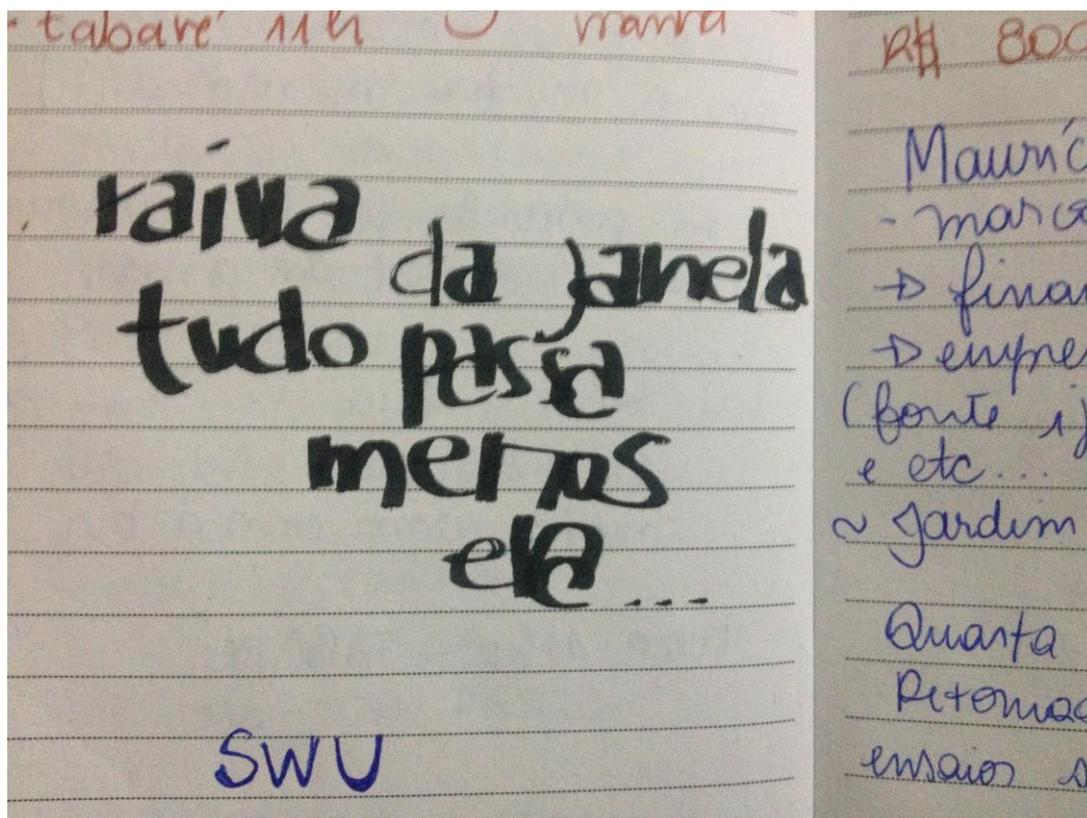 tabaré 11h
raiva
da janela
tudo passa
menos
ela...
SWU
R$ 800
Mauríc
- marca
→ finan
→ empre
(fonte 1)
e etc...
~ Jardim
Quarta
Retomad
ensaios s